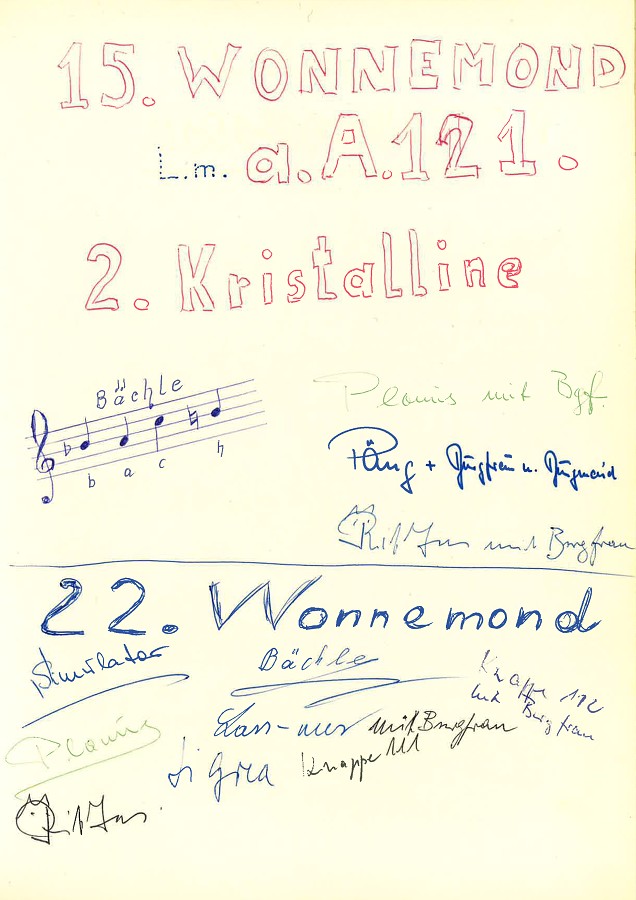 15. WONNEMOND
L.m. a.A.121.
2. Kristalline
Bächle
b a c h
Plonis mit Bgf.
Päng + Burgfrau u. Burgmaid
RitJus mit Burgfrau
22. Wonnemond
Stimulator
Bächle
Knappe 112
mit Burgfrau
Lass-nus mit Burgfrau
Knappe 111
RitJus.